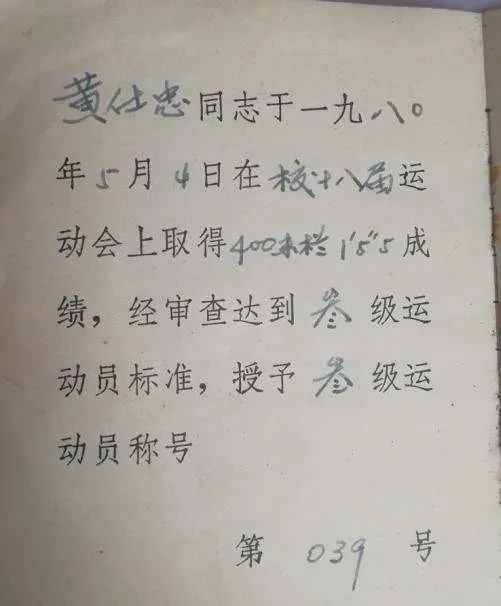 黄仕忠同志于一九八〇
年5月4日在校十八届运
动会上取得400米栏1'5"5成
绩，经审查达到叁级运
动员标准，授予叁级运
动员称号
第039号